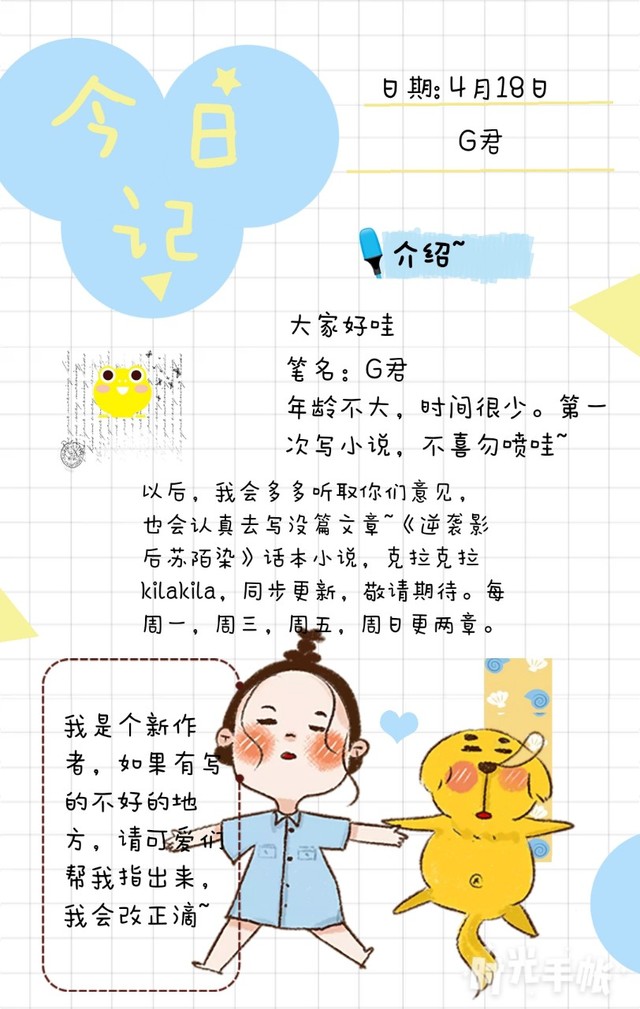 今日记
日期:4月18日
G君
介绍~
大家好哇
笔名：G君
年龄不大，时间很少。第一
次写小说，不喜勿喷哇~
以后，我会多多听取你们意见，
也会认真去写没篇文章~《逆袭影
后苏陌染》话本小说，克拉克拉
kilakila，同步更新，敬请期待。每
周一，周三，周五，周日更两章。
我是个新作
者，如果有写
的不好的地
方，请可爱们
帮我指出来，
我会改正滴~
时光手帐